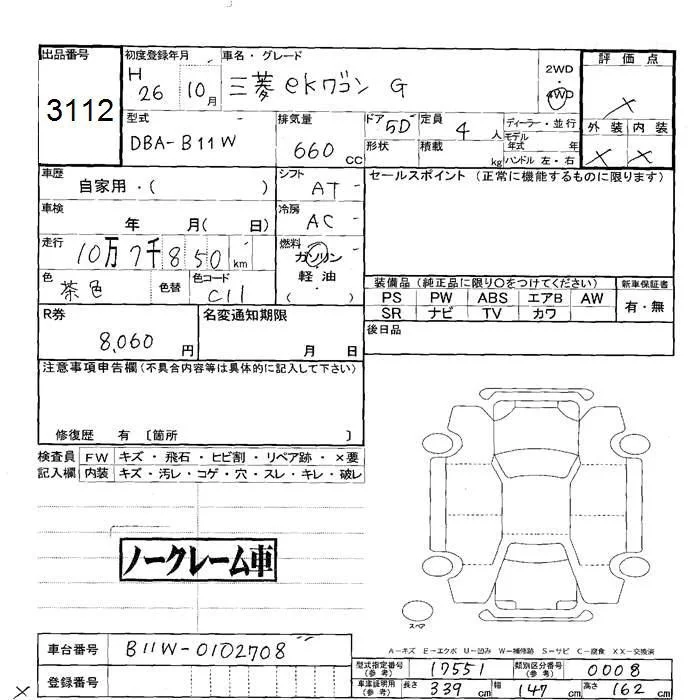 出品番号
3112
初度登録年月
H 26 10月
車名・グレード
三菱 ekワゴン G
2WD
4WD
評価点
×
外装 内装
× ×
型式
DBA-B11W
排気量
660 CC
ドア 5D
形状
定員 4 人
積載 kg
ディーラー・並行
モデル
年式 年
ハンドル 左・右
車歴
自家用・( )
シフト
AT
セールスポイント (正常に機能するものに限ります)
車検
年 月( 日)
冷房
AC
走行
10万7千850km
燃料
ガソリン
軽油
( )
色
茶色
色替
色コード
C11
装備品 (純正品に限り○をつけてください)
新車保証書
PS PW ABS エアB AW
SR ナビ TV カワ
有・無
R券
8,060 円
名変通知期限
月 日
後日品
注意事項申告欄 (不具合内容等は具体的に記入して下さい)
修復歴 有 〔箇所 〕
検査員 FW キズ・飛石・ヒビ割・リペア跡・×要
記入欄 内装 キズ・汚レ・コゲ・穴・スレ・キレ・破レ
ノークレーム車
スペア
A-キズ E-エクボ U-凹み W-補修跡 S-サビ C-腐食 XX-交換済
車台番号 B11W-0102708
登録番号
×
型式指定番号 (参考) 17551
類別区分番号 (参考) 0008
車庫証明用 (参考) 長さ 339 cm 幅 147 cm 高さ 162 cm